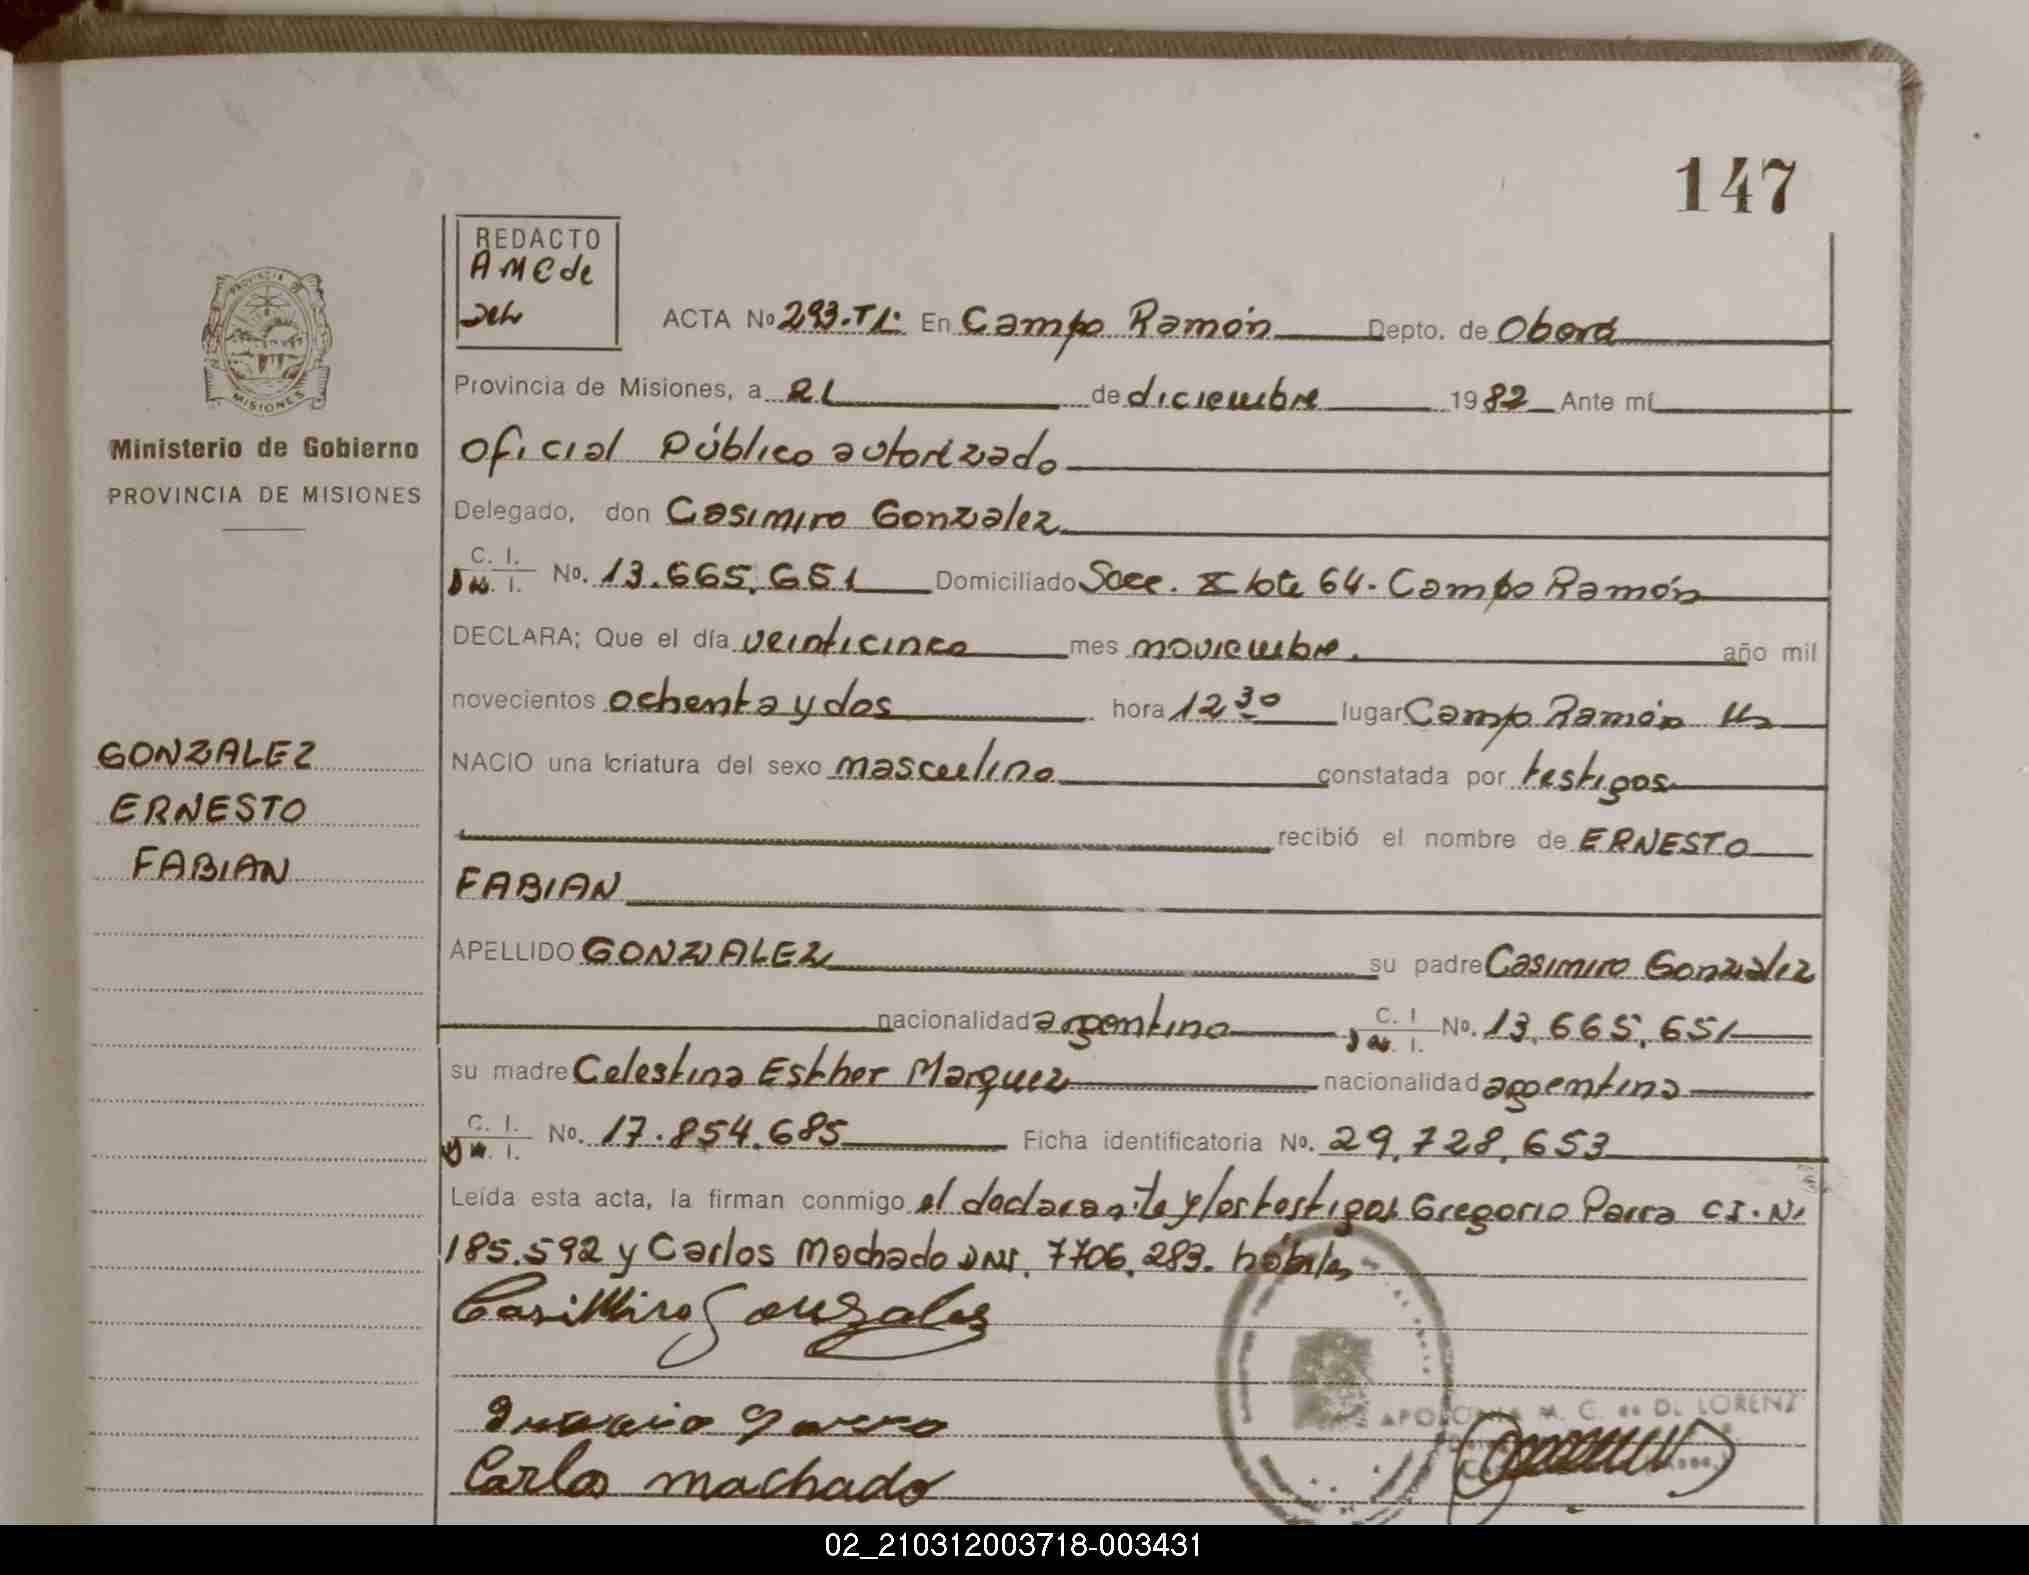 147
REDACTO
AMC de
ACTA No 293.TL. En Campo Ramón Depto. de Oberá
Provincia de Misiones, a 21 de diciembre 1982 Ante mí
oficial Público autorizado
Ministerio de Gobierno
PROVINCIA DE MISIONES
Delegado, don Casimiro Gonzalez
C. I. D N. I. No. 13.665.651 Domiciliado Secc. X lote 64. Campo Ramón
DECLARA; Que el día veinticinco mes noviembre. año mil
novecientos ochenta y dos hora 12 30 lugar Campo Ramón
GONZALEZ
ERNESTO
FABIAN
NACIO una criatura del sexo masculino constatada por testigos
recibió el nombre de ERNESTO
FABIAN
APELLIDO GONZALEZ su padre Casimiro Gonzalez
nacionalidad argentino C. I D N. I. No. 13.665.651
su madre Celestina Esther Marquez nacionalidad argentina
C. I. D N. I. No. 17.854.685 Ficha identificatoria No. 29.728.653
Leída esta acta, la firman conmigo el declarante y los testigos Gregorio Parra CI. N.
185.592 y Carlos Machado DNI. 7706.283. hábiles
Casimiro Gonzalez
Carlos machado
APOLONIA M. C. de DL LORENZ
02_210312003718-003431